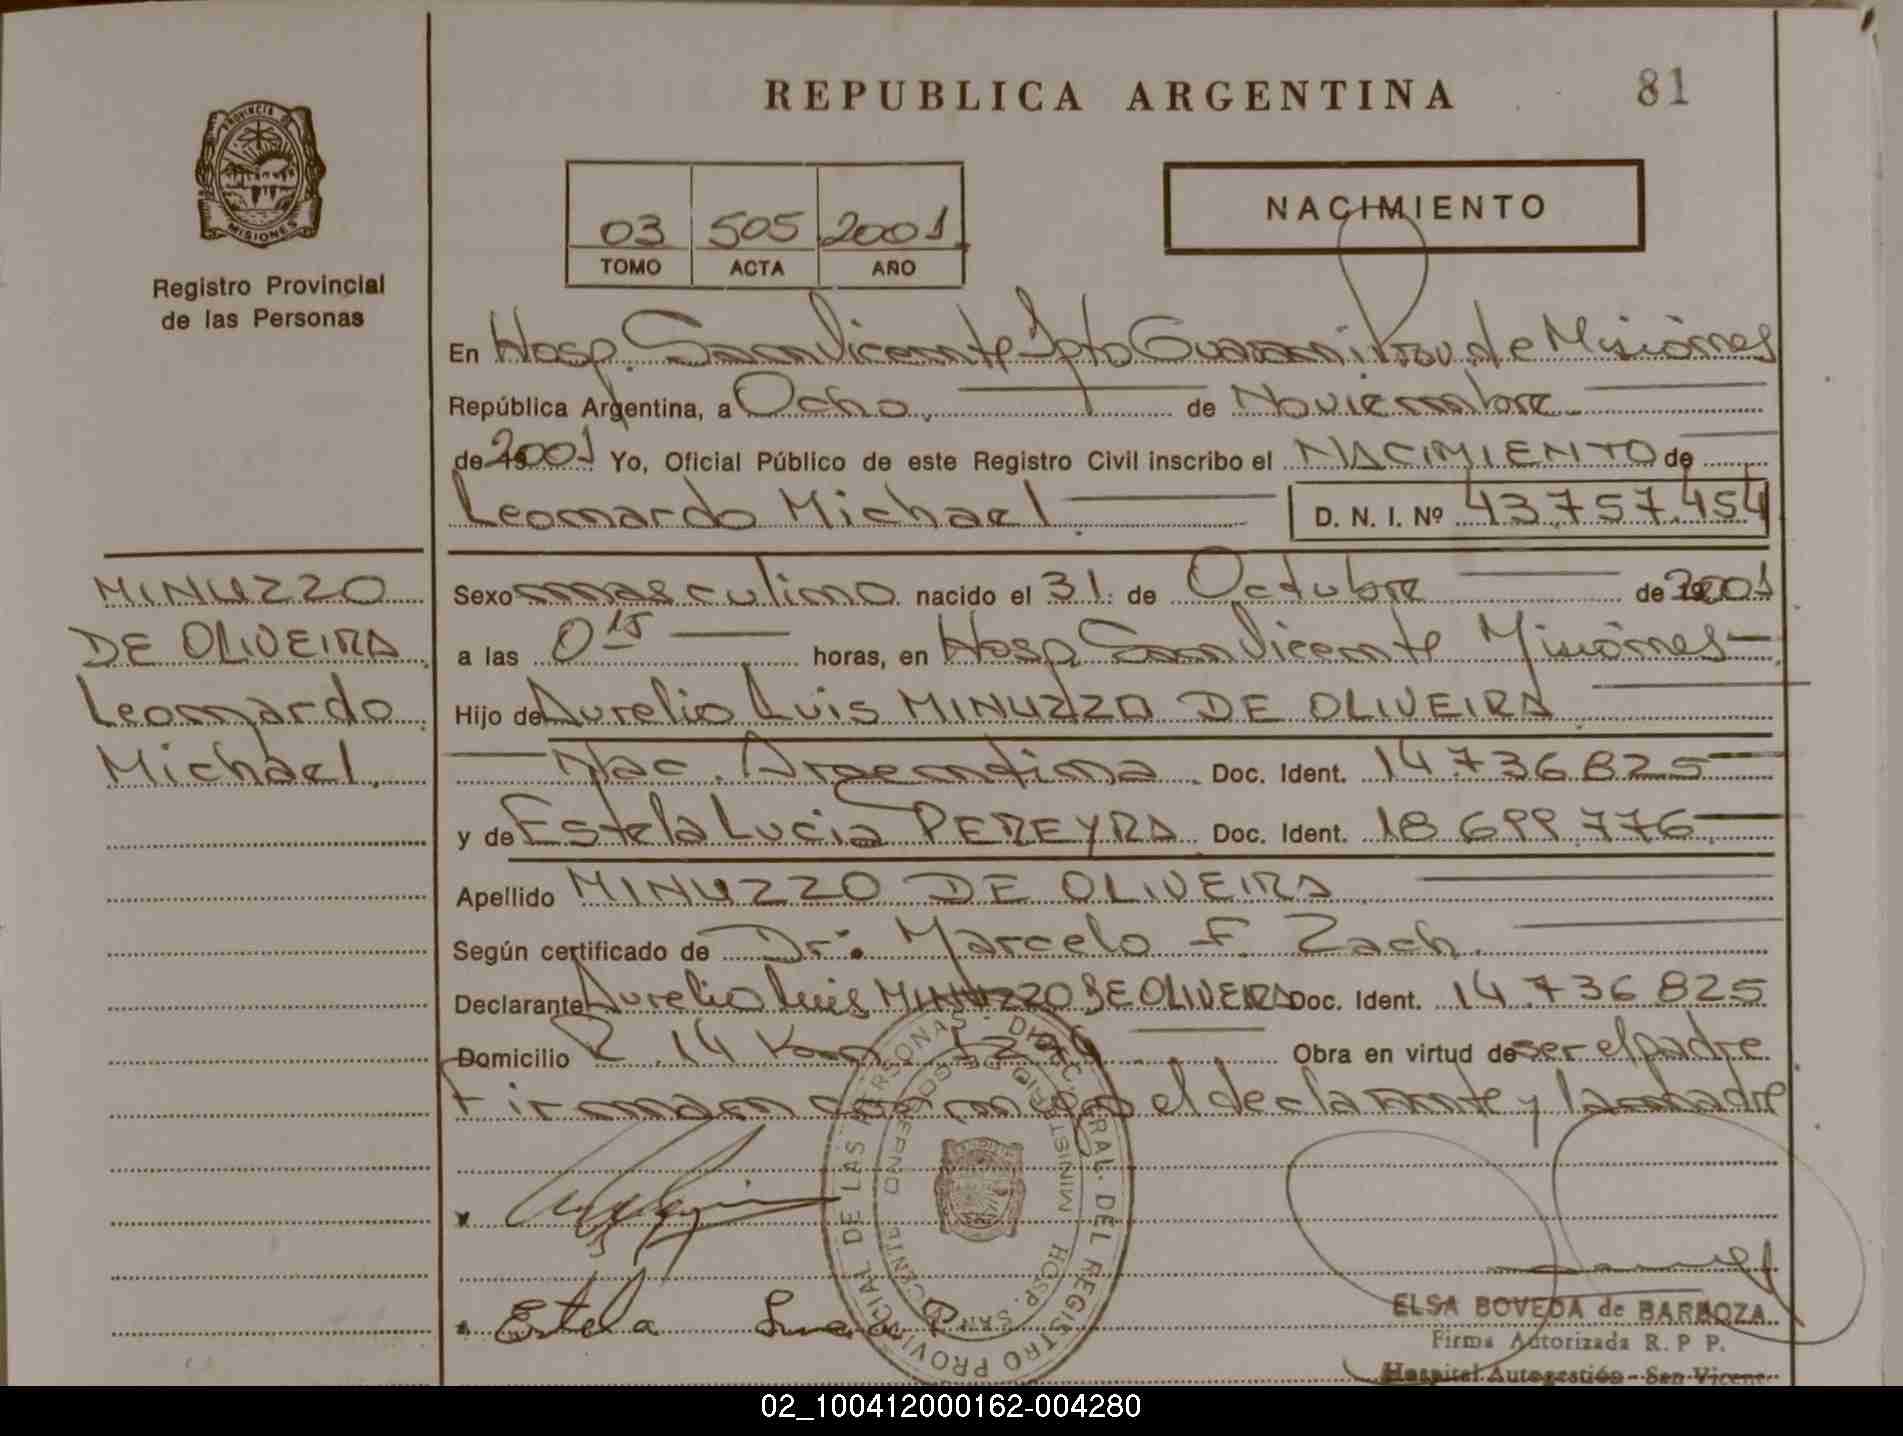 REPUBLICA ARGENTINA
81
PROVINCIA DE
MISIONES
Registro Provincial
de las Personas
03 505 2001
TOMO ACTA AÑO
NACIMIENTO
En Hosp. San Vicente Dpto Guarani Prov de Misiones
República Argentina, a Ocho de Noviembre
de 2001 Yo, Oficial Público de este Registro Civil inscribo el NACIMIENTO de
Leonardo Michael D. N. I. Nº 43.757.454
MINUZZO
DE OLIVEIRA
Leonardo
Michael
Sexo masculino nacido el 31 de Octubre de 2001
a las 0 15 horas, en Hosp San Vicente Misiones
Hijo de Aurelio Luis MINUZZO DE OLIVEIRA
Nac. Argentina Doc. Ident. 14.736.825
y de Estela Lucia PEREYRA Doc. Ident. 18.699.776
Apellido MINUZZO DE OLIVEIRA
Según certificado de Dr. Marcelo F. Zach
Declarante Aurelio Luis MINUZZO DE OLIVEIRA Doc. Ident. 14.736.825
Domicilio R 14 Km Obra en virtud de ser el padre
Firman conmigo el declarante y la madre
REGISTRO PROVINCIAL DE LAS PERSONAS
HOSP. SAN VICENTE
Estela
ELSA BOVEDA de BARBOZA
Firma Autorizada R. P P.
Hospital Autogestión - San Vicente
02_100412000162-004280